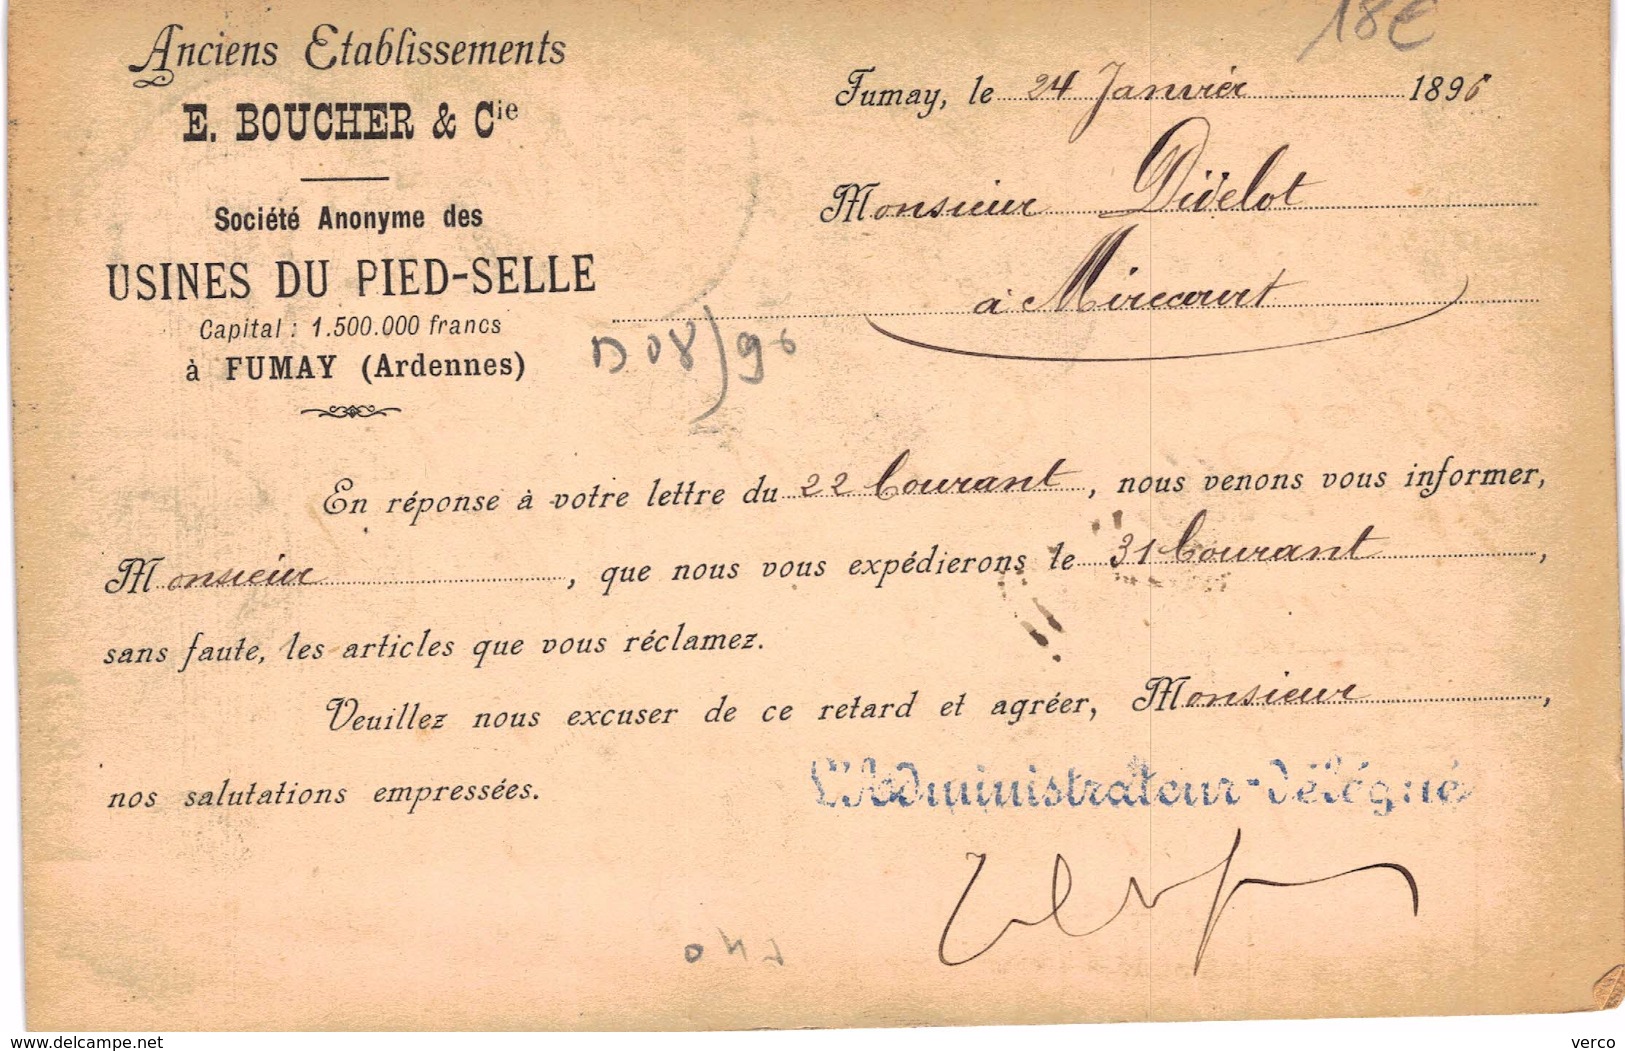 18€
Anciens Etablissements
E. BOUCHER & Cie
Société Anonyme des
USINES DU PIED-SELLE
Capital : 1.500.000 francs
à FUMAY (Ardennes)
Fumay, le 24 Janvier 1896
Monsieur Didelot
à Mirecourt
En réponse à votre lettre du 22 Courant, nous venons vous informer,
Monsieur, que nous vous expédierons le 31 Courant,
sans faute, les articles que vous réclamez.
Veuillez nous excuser de ce retard et agréer, Monsieur,
nos salutations empressées.
L'Administrateur-Délégué
delcampe.net
verco